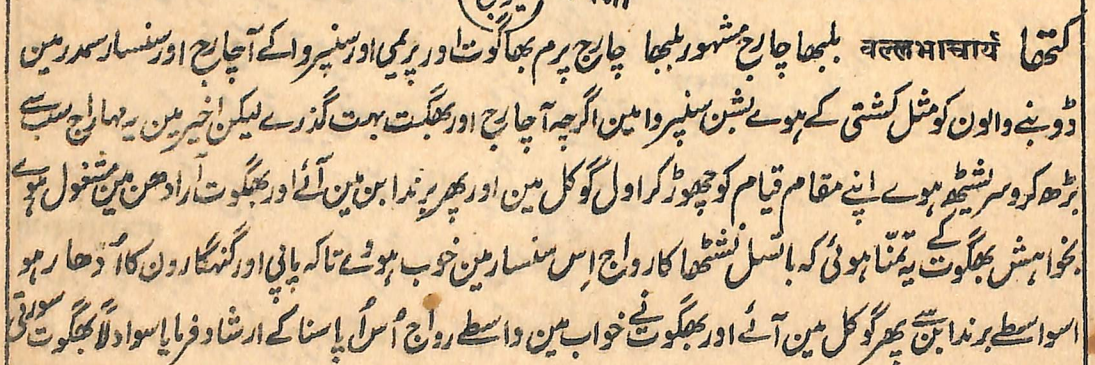 کتھا वल्लभाचार्य بلبھاچارج مشہور بلبھا چارج پرم بھاگوت اور پریمی اور سنپروا کے آچارج اور سنسار سمدر مین
ڈوبنے والون کو مثل کشتی کے ہوے بشن سنپروا مین اگرچہ آچارج اور بھگت بہت گذرے لیکن اخیر مین یہ مہاراج سب سے
بڑھ کر و سریشٹھ ہوے اپنے مقام قیام کو چھوڑ کر اول گوکل مین اور پھر برندابن مین آئے اور بھگوت آرادھن مین مشغول ہوے
بخواہش بھگوت کے یہ تمنّا ہوئی کہ باتسل نشٹھا کا رواج اِس سنسار مین خوب ہووے تاکہ پاپی اور گنہگارون کا اُدھار ہو
اسواسطے برندابن سے پھر گوکل مین آئے اور بھگوت نے خواب مین واسطے رواج اُس اُپاسنا کے ارشاد فرمایا سو اولاً بھگوت